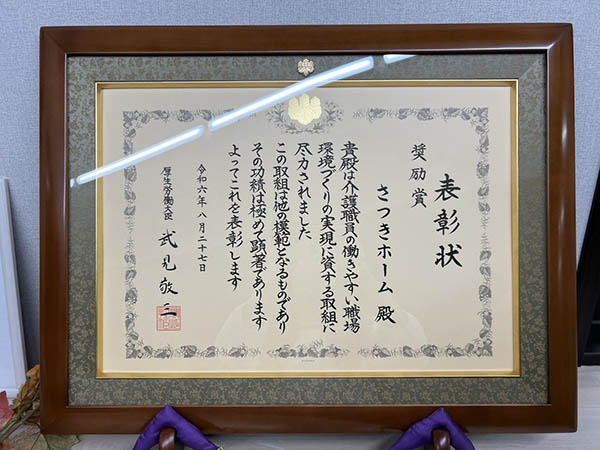 表彰状
奨励賞
さつきホーム 殿
貴殿は介護職員の働きやすい職場
環境づくりの実現に資する取組に
尽力されました
この取組は他の模範となるものであり
その功績は極めて顕著であります
よってこれを表彰します
令和六年八月二十七日
厚生労働大臣 武見敬三